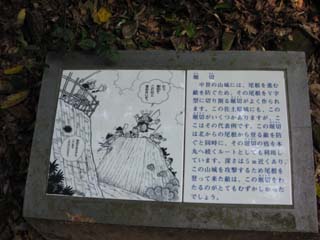 堀切
中世の山城には、尾根を進む
敵を防ぐため、その尾根をV字
型に切り割る堀切がよく作られ
ます。この佐土原城にも、この
堀切がいくつかありますが、こ
こはその代表例です。この堀切
は北からの尾根から登る敵を防
ぐと同時に、その堀切の底を本
丸へ続くルートとしても利用し
ています。深さは5m近くあり、
この山城を攻撃するため尾根を
登って来た敵は、この堀切をわ
たるのがとてもむずかしかった
でしょう。